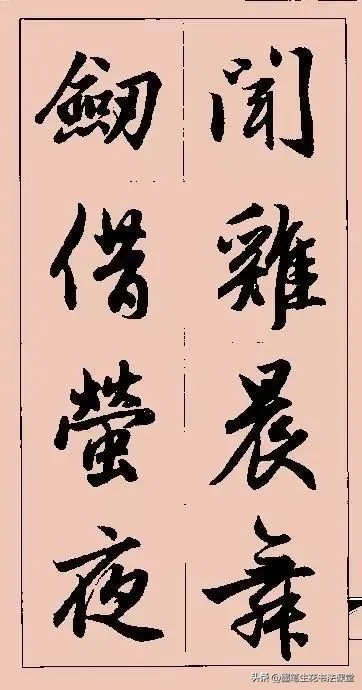 聞雞晨舞
劒借螢夜
头条 @墨笔生花书法课堂